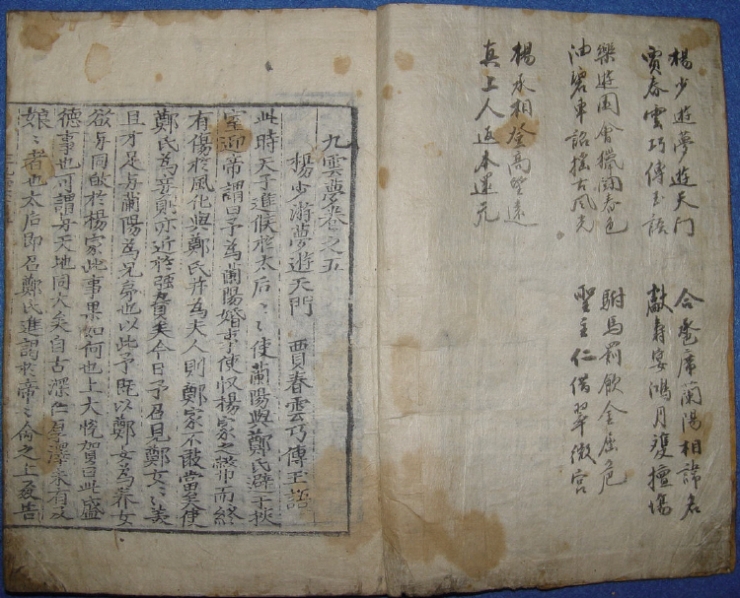 楊少遊夢遊天門 合巹席蘭陽相諱名
賈春雲巧傳玉語 獻壽宴鴻月雙擅塲
樂遊園會獵鬪春色 駙馬罰飲金屈巵
油碧車招搖古風光 聖主仁借翠微宮
楊丞相登高望遠
真上人返本還元
九雲夢卷之五
楊少游夢遊天門 賈春雲巧傳玉語
此時天子進候於太后〻〻使蘭陽與鄭氏避于挾
室迎帝謂曰予為蘭陽婚事使収楊家之幣而終
有傷於風化與鄭氏并為夫人則鄭家不敢當使
鄭氏為妾則亦近於强矣今日予召見鄭女〻〻美
且才足与蘭陽為兄弟也以此予既以鄭女為养女
欲与同故於楊家此事果如何也上大悅賀曰此盛
德事也可謂与天地同大矣自古深仁厚澤未有及
娘〻者也太后即召鄭氏進謁於帝〻命之上殿告